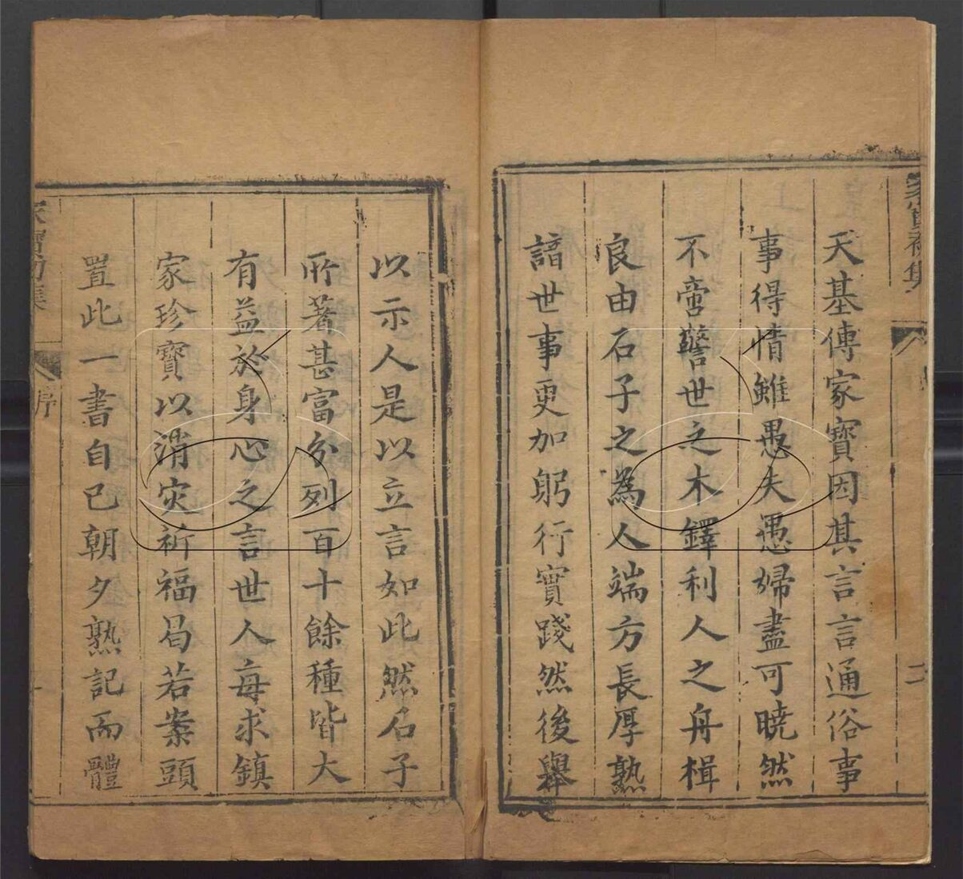 家寶初集
二
天基傳家寶因其言言通俗事
事得情雖愚夫愚婦盡可曉然
不啻警世之木鐸利人之舟楫
良由石子之為人端方長厚熟
諳世事更加躬行實踐然後舉
以示人是以立言如此然石子
所著甚富分列百十餘種皆大
有益於身心之言世人每求鎮
家珍寶以消灾祈福曷若案頭
置此一書自已朝夕熟記而體
家寶初集
序